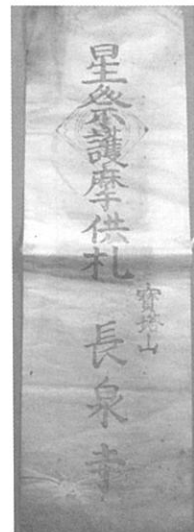 星祭護摩供札
寶塔山
長泉寺